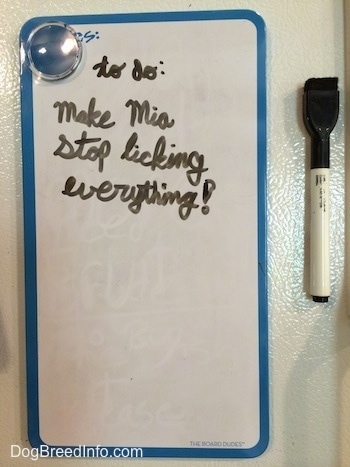 to do:
Make Mia
stop licking
everything!
THE BOARD DUDES™
DogBreedInfo.com